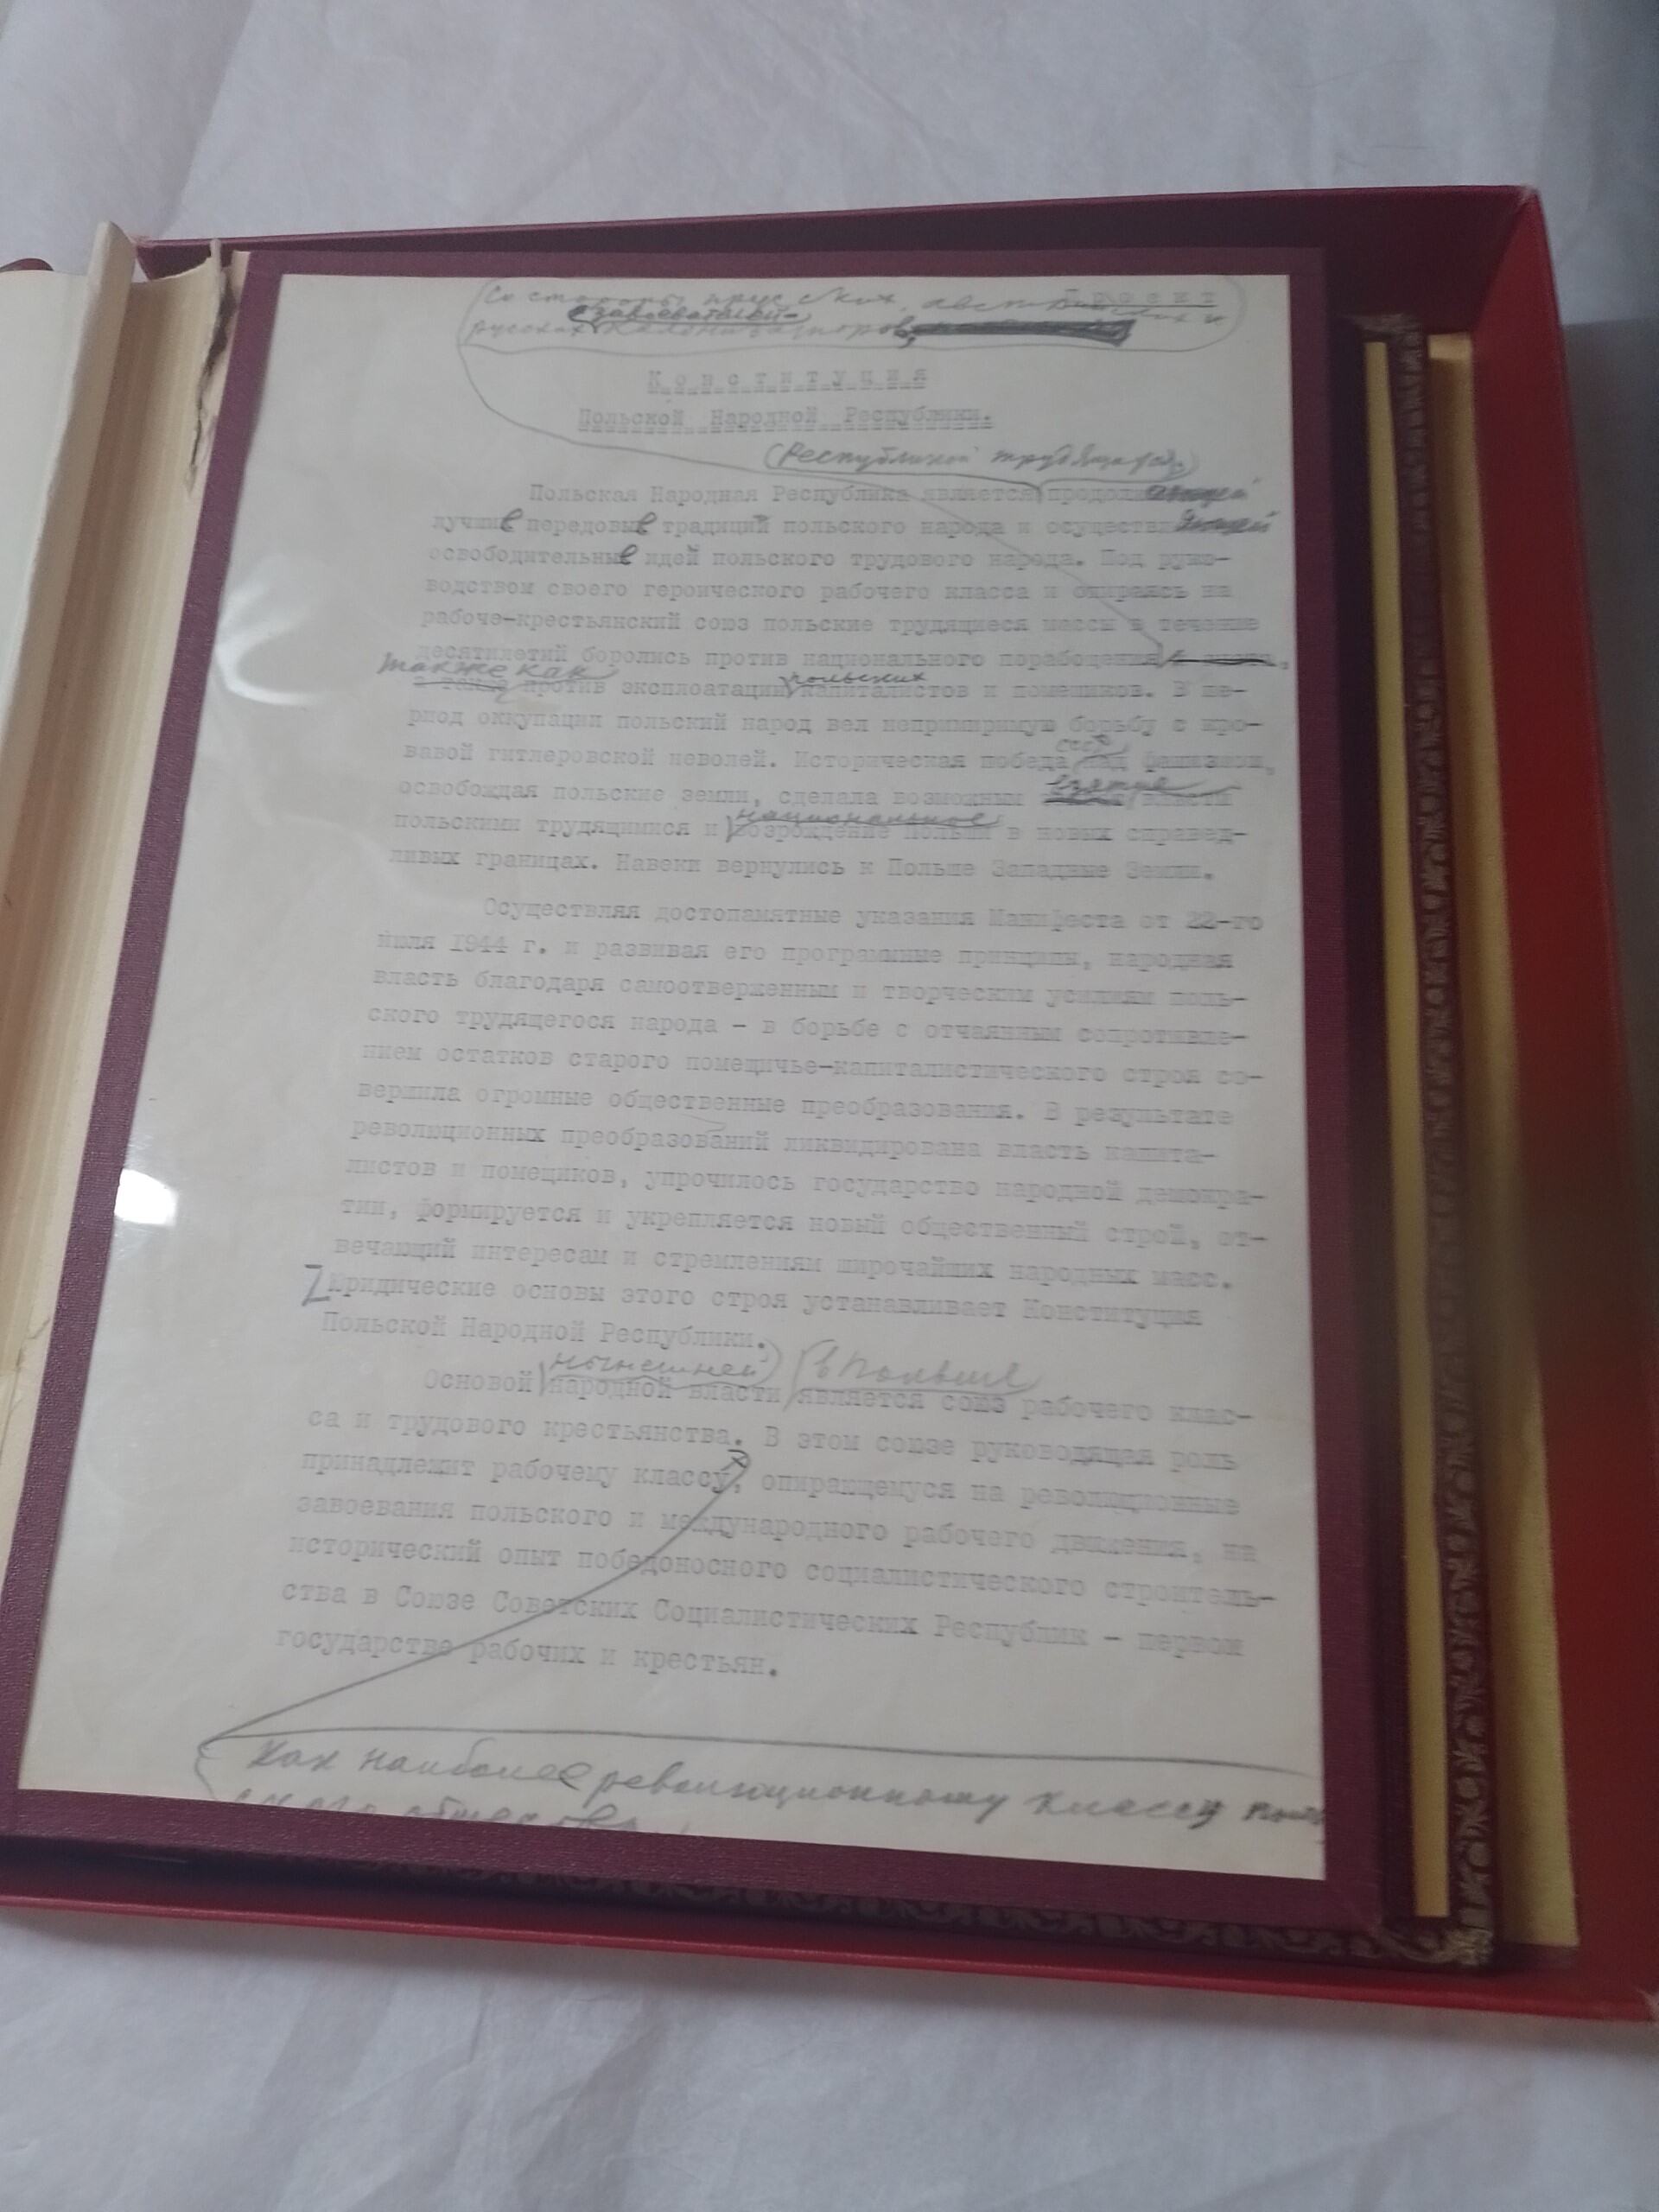 Со стороны прусских, австрийских и
Проект
завоевателей-
русских колонизаторов,
Конституция
Польской Народной Республики.
(Республикой трудящихся,)
Польская Народная Республика является продолжающей
лучшие передовые традиций польского народа и осуществляющей
освободительные идей польского трудового народа. Под руко-
водством своего героического рабочего класса и опираясь на
рабоче-крестьянский союз польские трудящиеся массы в течение
десятилетий боролись против национального порабощения
также как польских
против эксплоатации капиталистов и помещиков. В пе-
риод оккупации польский народ вел непримиримую борьбу с кро-
СССР
вавой гитлеровской неволей. Историческая победа над фашизмом,
взятие
освобождая польские земли, сделала возможным власти
национальное
польскими трудящимися и возрождение Польши в новых справед-
ливых границах. Навеки вернулись к Польше Западные Земли.
Осуществляя достопамятные указания Манифеста от 22-го
июля 1944 г. и развивая его программные принципы, народная
власть благодаря самоотверженным и творческим усилиям поль-
ского трудящегося народа - в борьбе с отчаянным сопротивле-
нием остатков старого помещичье-капиталистического строя со-
вершила огромные общественные преобразования. В результате
революционных преобразований ликвидирована власть капита-
листов и помещиков, упрочилось государство народной демокра-
тии, формируется и укрепляется новый общественный строй, от-
вечающий интересам и стремлениям широчайших народных масс.
Юридические основы этого строя устанавливает Конституция
Польской Народной Республики.
нынешней в Польше
Основой народной власти является союз рабочего клас-
са и трудового крестьянства. В этом союзе руководящая роль
принадлежит рабочему классу, опирающемуся на революционные
завоевания польского и международного рабочего движения, на
исторический опыт победоносного социалистического строитель-
ства в Союзе Советских Социалистических Республик - первом
государстве рабочих и крестьян.
как наиболее революционному классу
ского общества,